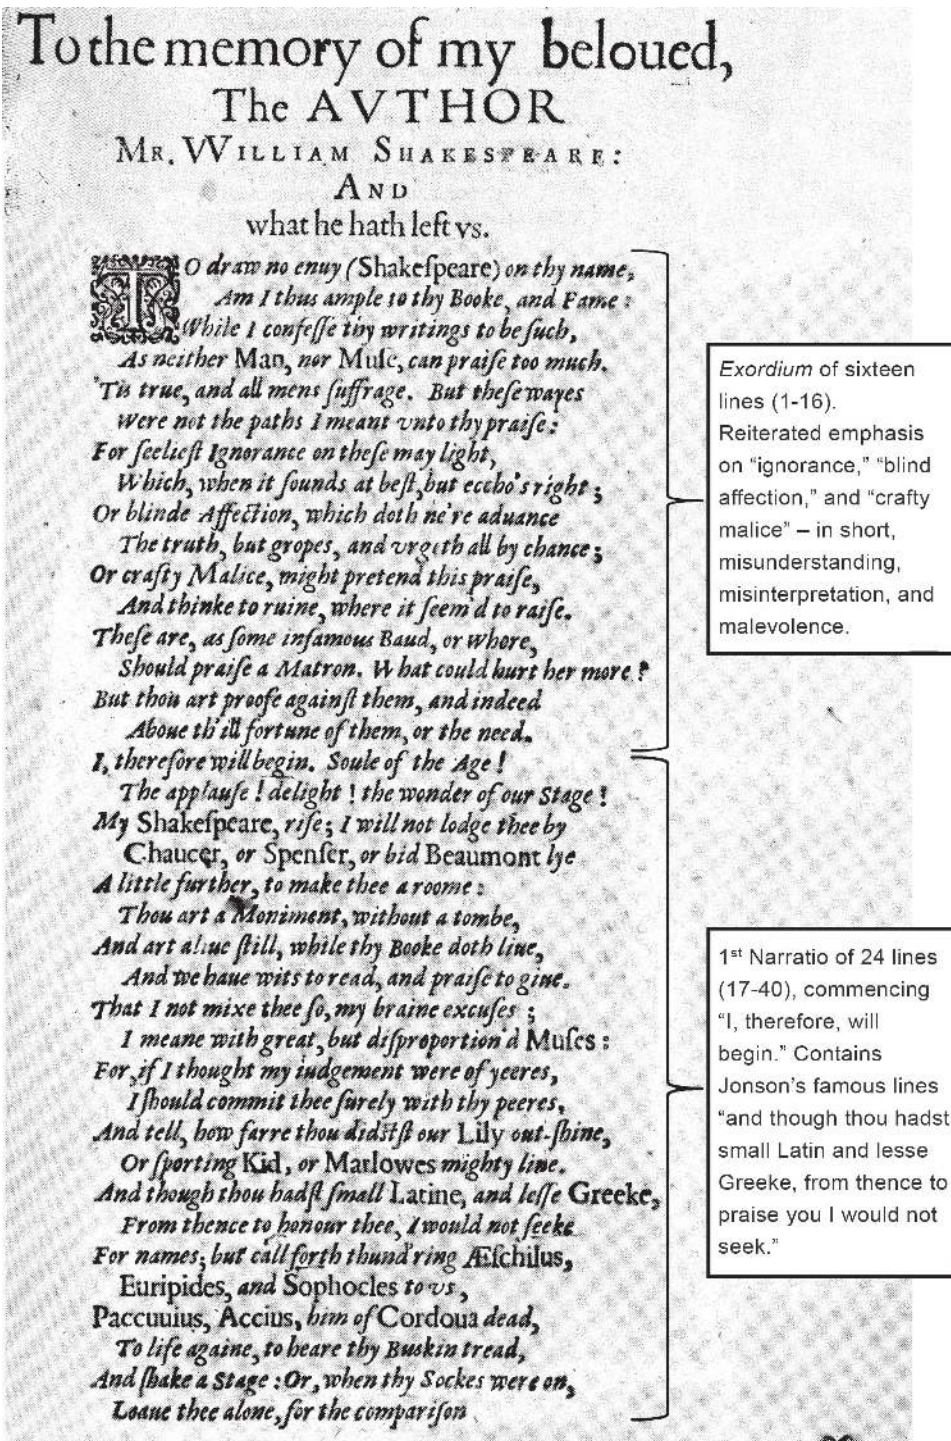 To the memory of my beloued,
The AVTHOR
MR. VVILLIAM SHAKESPEARE:
AND
what he hath left vs.
TO draw no enuy (Shakeſpeare) on thy name,
Am I thus ample to thy Booke, and Fame:
While I confeſſe thy writings to be ſuch,
As neither Man, nor Muſe, can praiſe too much.
'Tis true, and all mens ſuffrage. But theſe wayes
Were not the paths I meant vnto thy praiſe:
For ſeelieſt Ignorance on theſe may light,
Which, when it ſounds at beſt, but eccho's right;
Or blinde Affection, which doth ne're aduance
The truth, but gropes, and vrgeth all by chance;
Or crafty Malice, might pretend this praiſe,
And thinke to ruine, where it ſeem'd to raiſe.
Theſe are, as ſome infamous Baud, or Whore,
Should praiſe a Matron. What could hurt her more?
But thou art proofe againſt them, and indeed
Aboue th'ill fortune of them, or the need.
I, therefore will begin. Soule of the Age!
The applauſe! delight! the wonder of our Stage!
My Shakeſpeare, riſe; I will not lodge thee by
Chaucer, or Spenſer, or bid Beaumont lye
A little further, to make thee a roome:
Thou art a Moniment, without a tombe,
And art aliue ſtill, while thy Booke doth liue,
And we haue wits to read, and praiſe to giue.
That I not mixe thee ſo, my braine excuſes;
I meane with great, but diſproportion'd Muſes:
For, if I thought my iudgement were of yeeres,
I ſhould commit thee ſurely with thy peeres,
And tell, how farre thou didſtſt our Lily out-ſhine,
Or ſporting Kid, or Marlowes mighty line.
And though thou hadſt ſmall Latine, and leſſe Greeke,
From thence to honour thee, I would not ſeeke
For names; but call forth thund'ring Æſchilus,
Euripides, and Sophocles to vs,
Paccuuius, Accius, him of Cordoua dead,
To life againe, to heare thy Buskin tread,
And ſhake a Stage: Or, when thy Sockes were on,
Leaue thee alone, for the compariſon
Exordium of sixteen
lines (1-16).
Reiterated emphasis
on "ignorance," "blind
affection," and "crafty
malice" – in short,
misunderstanding,
misinterpretation, and
malevolence.
1st Narratio of 24 lines
(17-40), commencing
"I, therefore, will
begin." Contains
Jonson's famous lines
"and though thou hadst
small Latin and lesse
Greeke, from thence to
praise you I would not
seek."